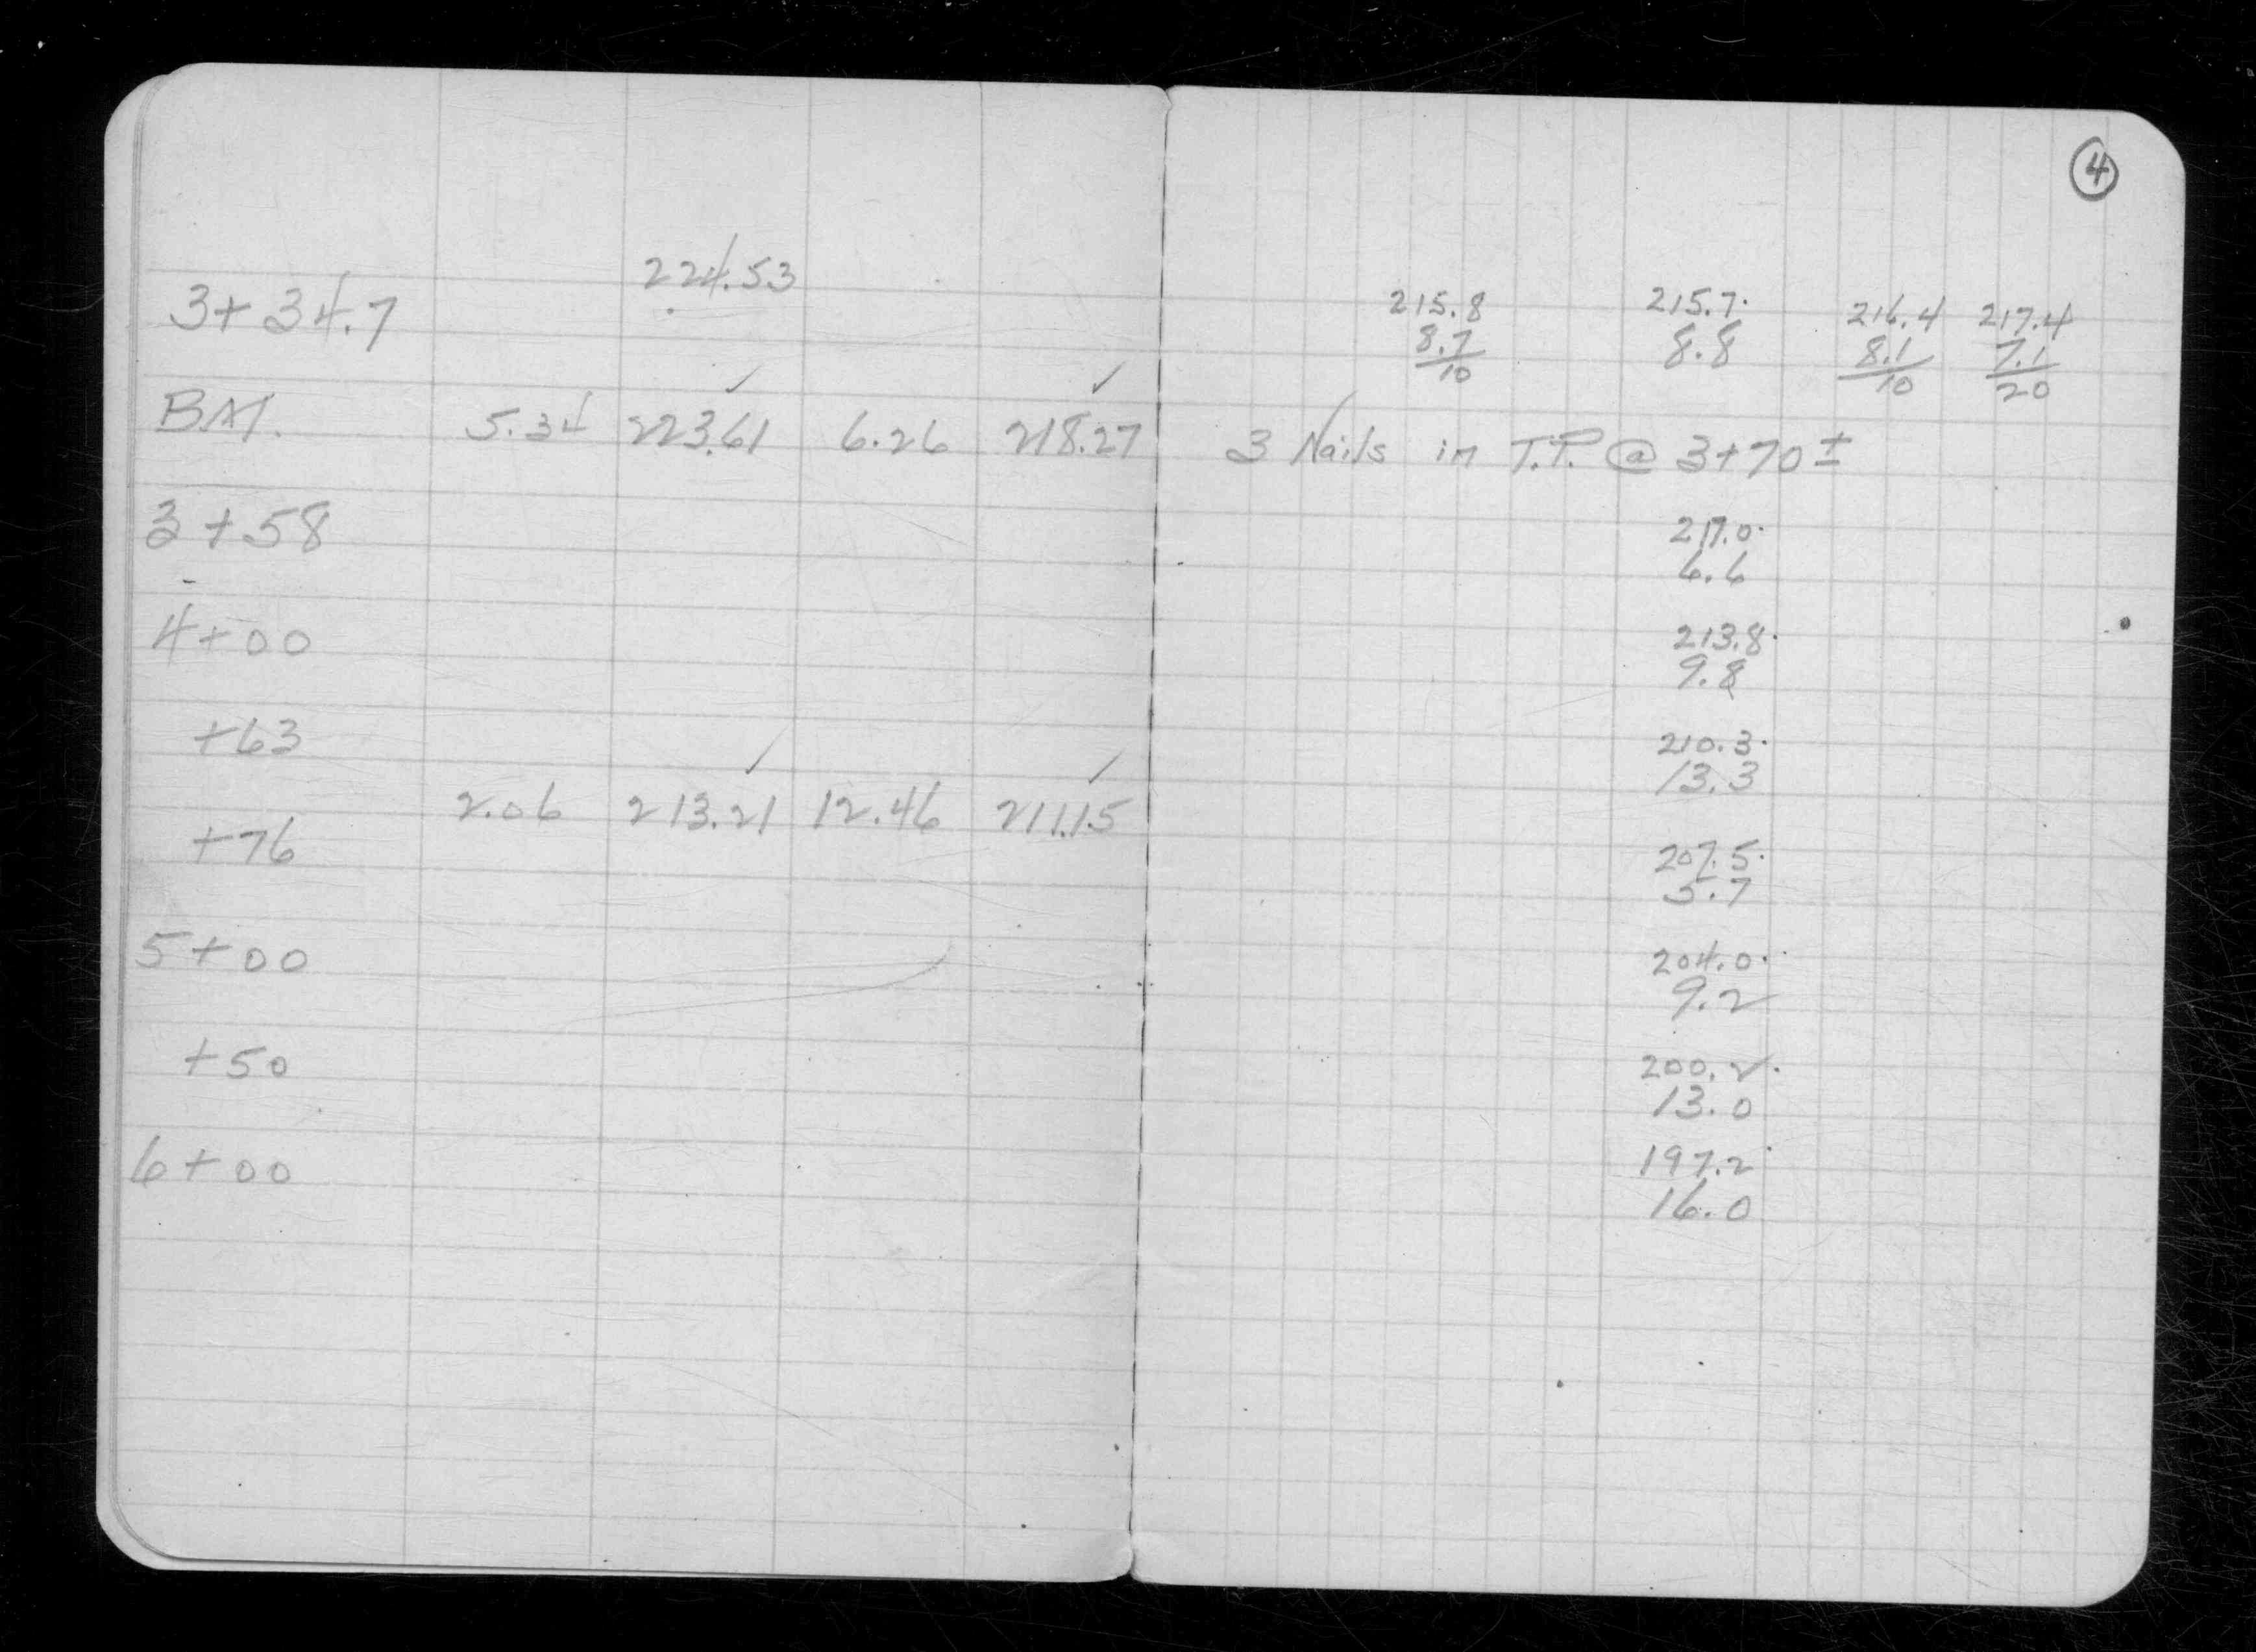 4
224.53
3+34.7 215.8 215.7 216.4 217.4
8.7 8.8 8.1 7.1
10 10 20
B.M. 5.34 223.61 6.26 218.27 3 Nails in T.P. @ 3+70±
3+58 217.0
6.6
4+00 213.8
9.8
+63 210.3
13.3
2.06 213.21 12.46 211.15
+76 207.5
5.7
5+00 204.0
9.2
+50 200.2
13.0
6+00 197.2
16.0